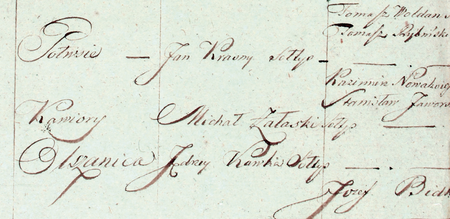 Tomasz Woldan
Tomasz Rybińsk
Potocie — Jan Krasny Sołtys —
Kazimirz Nowakow
Stanisław Jawors
Kawiory Michał Załaski Sołtys —
Olszanica Jędrzy Kawka Sołtys —
Jozef Bidł